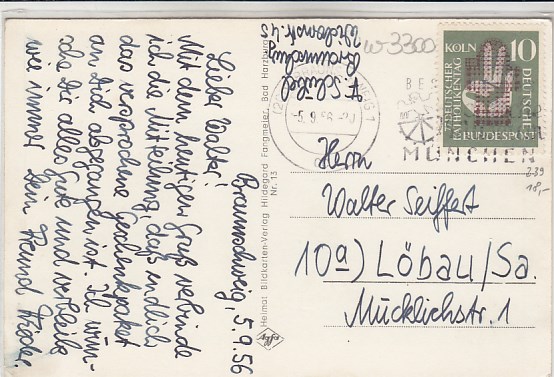 Braunschweig, 5.9.56
Lieber Walter!
Mit dem heutigen Gruß verbinde
ich die Mitteilung, daß endlich
das versprochene Geschenkpaket
an Dich abgegangen ist. Ich wün-
sche Dir alles Gute und verbleibe
wie immer Dein Freund
Braunschweig
Heimat Bildkarten-Verlag Hildegard Fangmeier, Bad Harzburg
Nr. 13
Agfa
w 3300
-5.9.56
MÜNCHEN
KÖLN
10
77. DEUTSCHER
KATHOLIKENTAG
DEUTSCHE
BUNDESPOST
239
18,-
Herrn
Walter Seiffert
10a) Löbau/Sa.
Mücklichstr. 1